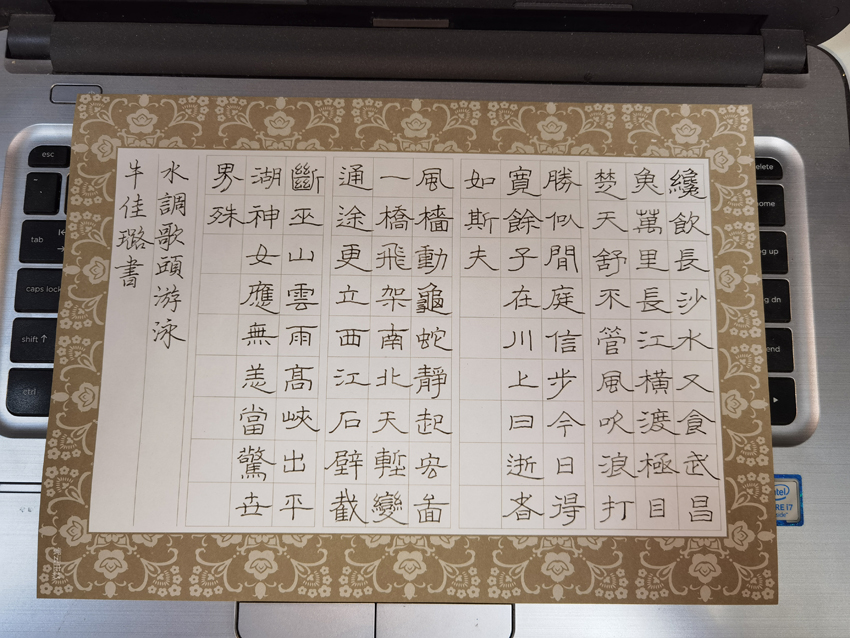 纔飲長沙水又食武昌
魚萬里長江橫渡極目
楚天舒不管風吹浪打
勝似閒庭信步今日得
寬餘子在川上曰逝者
如斯夫
風檣動龜蛇靜起宏圖
一橋飛架南北天塹變
通途更立西江石壁截
斷巫山雲雨高峽出平
湖神女應無恙當驚世
界殊
水調歌頭游泳
牛佳璐書
esc
tab
caps lock
shift
ctrl
delete
home